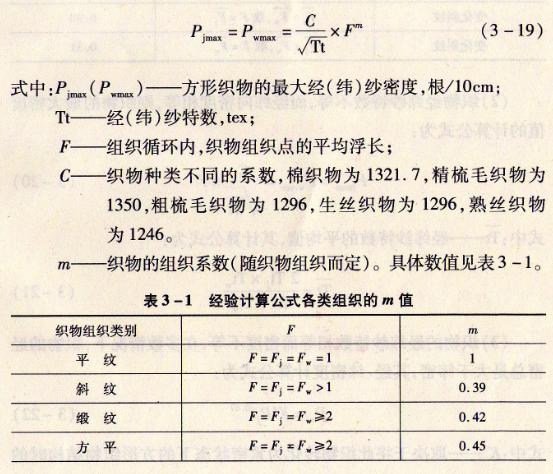 Pjmax = Pwmax = C/√Tt × F^m (3-19)
式中:Pjmax(Pwmax)——方形织物的最大经(纬)纱密度,根/10cm;
Tt——经(纬)纱特数,tex;
F——组织循环内,织物组织点的平均浮长;
C——织物种类不同的系数,棉织物为1321.7,精梳毛织物为
1350,粗梳毛织物为1296,生丝织物为1296,熟丝织物
为1246。
m——织物的组织系数(随织物组织而定)。具体数值见表3-1。
表3-1 经验计算公式各类组织的m值
织物组织类别 F m
平纹 F=Fj=Fw=1 1
斜纹 F=Fj=Fw>1 0.39
缎纹 F=Fj=Fw≥2 0.42
方平 F=Fj=Fw≥2 0.45